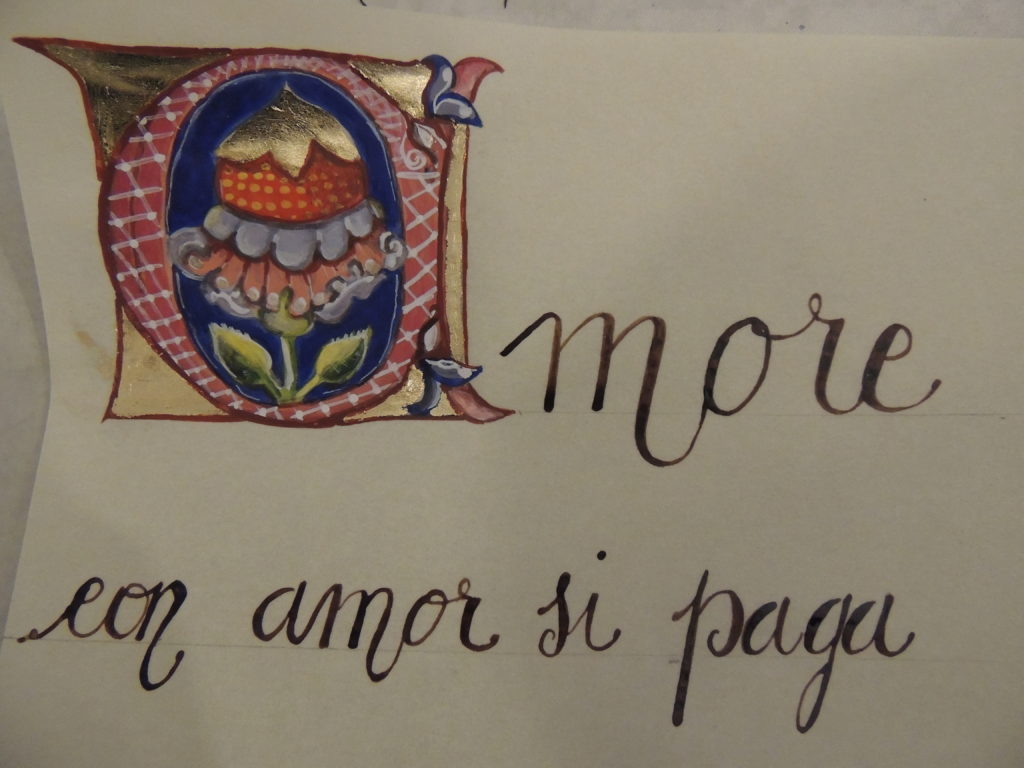 Amore
con amor si paga